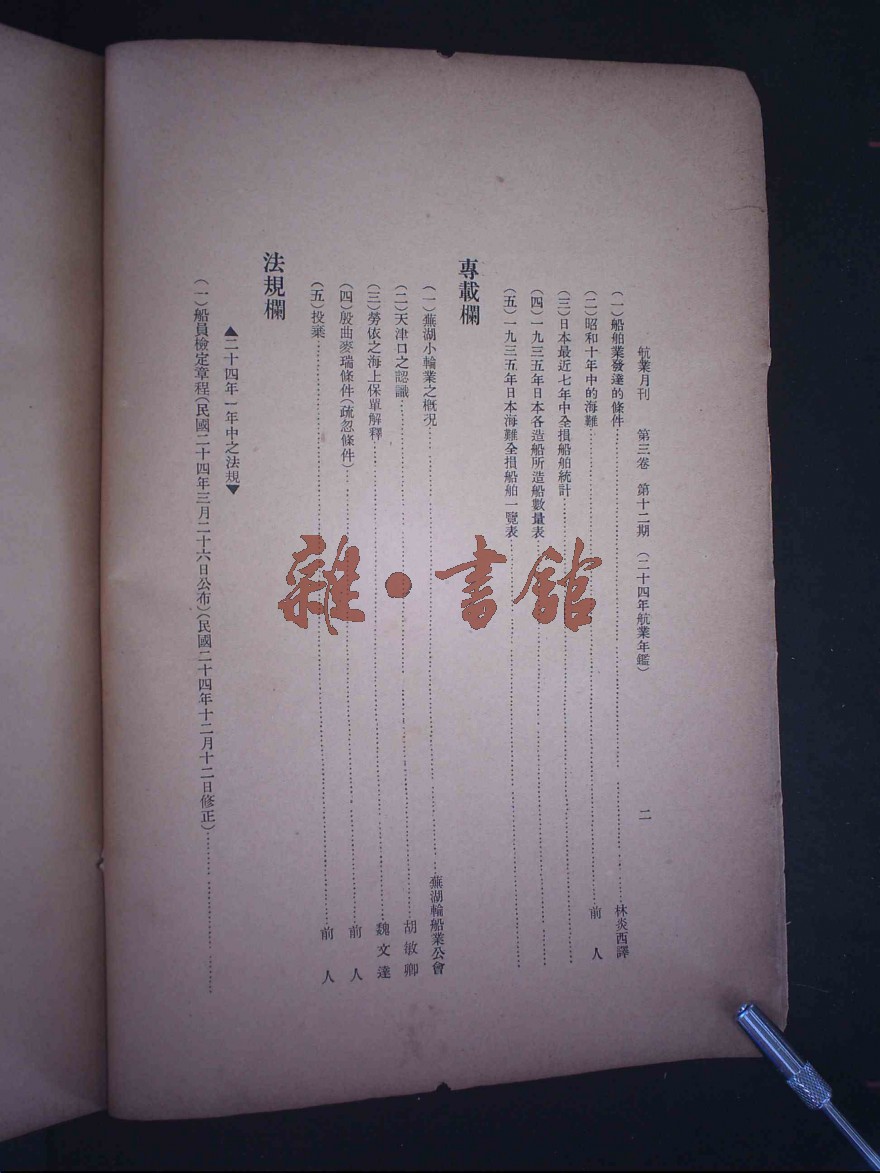 航業月刊 第三卷 第十二期 (二十四年航業年鑑) 二
(一)船舶業發達的條件……林炎西譯
(二)昭和十年中的海難……前人
(三)日本最近七年中全損船舶統計……
(四)一九三五年日本各造船所造船數量表……
(五)一九三五年日本海難全損船舶一覽表……
專載欄
(一)蕪湖小輪業之概況……蕪湖輪船業公會
(二)天津口之認識……胡敏卿
(三)勞依之海上保單解釋……魏文達
(四)殷曲麥瑞條件(疏忽條件)……前人
(五)投棄……前人
法規欄
▲二十四年一年中之法規▼
(一)船員檢定章程(民國二十四年三月二十六日公布)(民國二十四年十二月十二日修正)……
雜•書館